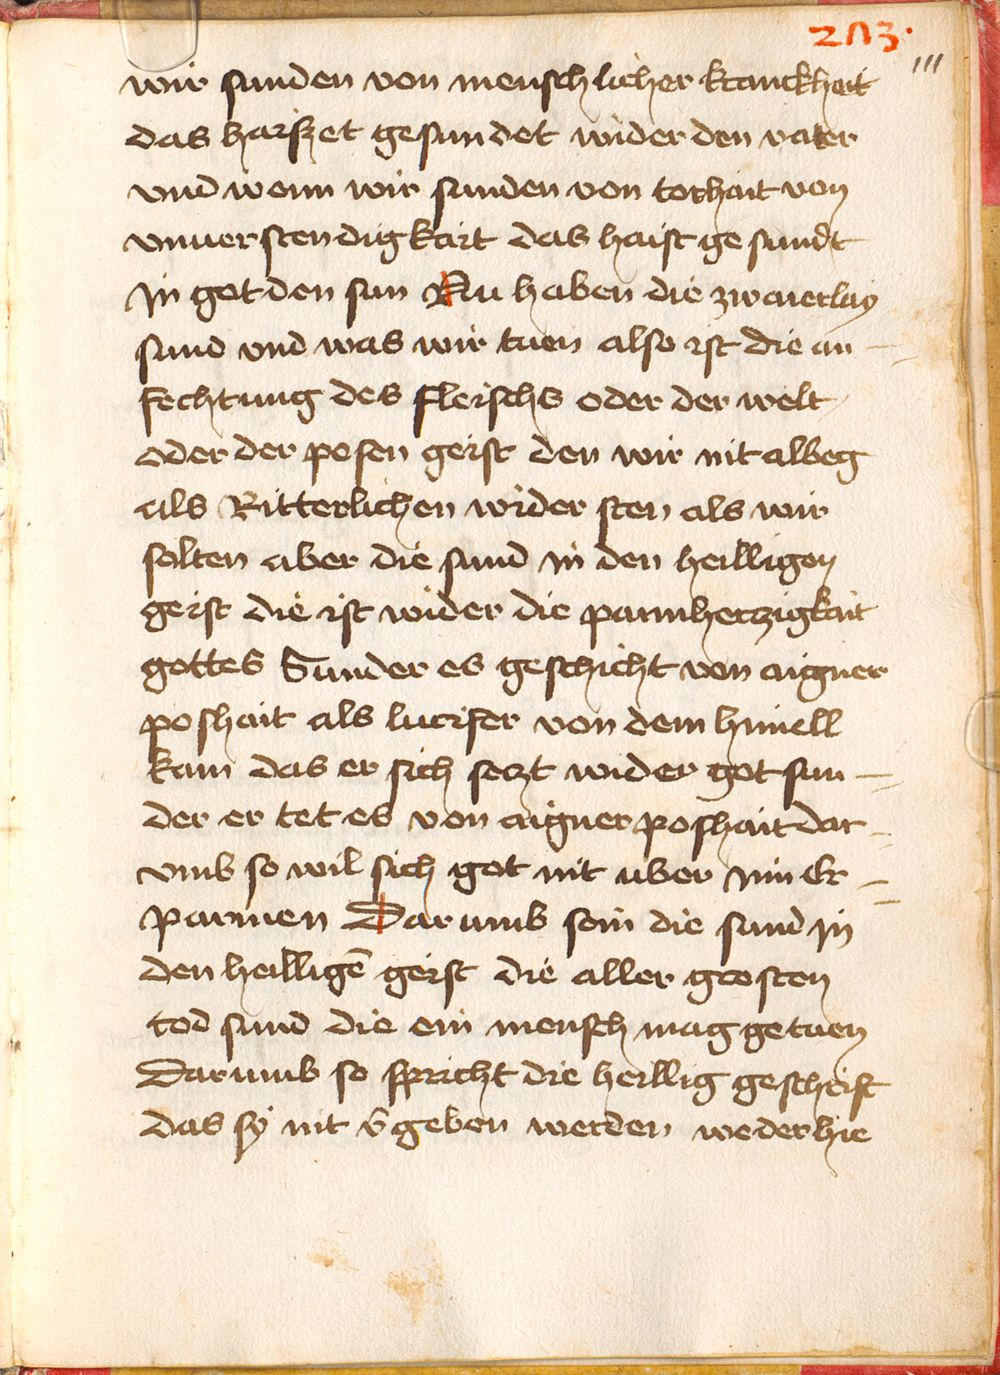 203.
111
wir sunden von menschlicher kranckheit
das haisset gesundet wider den vater
vnd wenn wir sunden von torhait von
vnuerstendigkait das haist gesundt
in got den sun Nu haben die zwaierlay
sund vnd was wir tuen also ist die an
fechtung des fleischs oder der welt
oder der posen geist den wir nit albeg
als Ritterlichen wider sten als wir
solten aber die sund in den heilligen
geist die ist wider die parmherzigkait
gottes Sunder es geschicht von aigner
poshait als lucifer von dem himell
kam das er sich sezt wider got sun
der er tet es von aigner poshait dar
vmb so wil sich got nit uber inn er
parmen Darumb sein die sund in
den heilligē geist die aller grosten
tod sund die ein mensch mag getuen
Darumb so spricht die heillig geschrift
das sy nit v̄geben werden weder hie